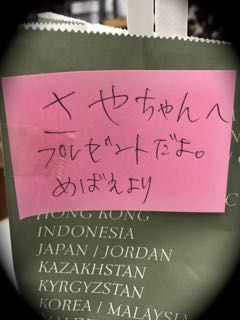 さやちゃんへ
プレゼントだよ。
めばえより
HONG KONG
INDONESIA
JAPAN / JORDAN
KAZAKHSTAN
KYRGYZSTAN
KOREA / MALAYSIA